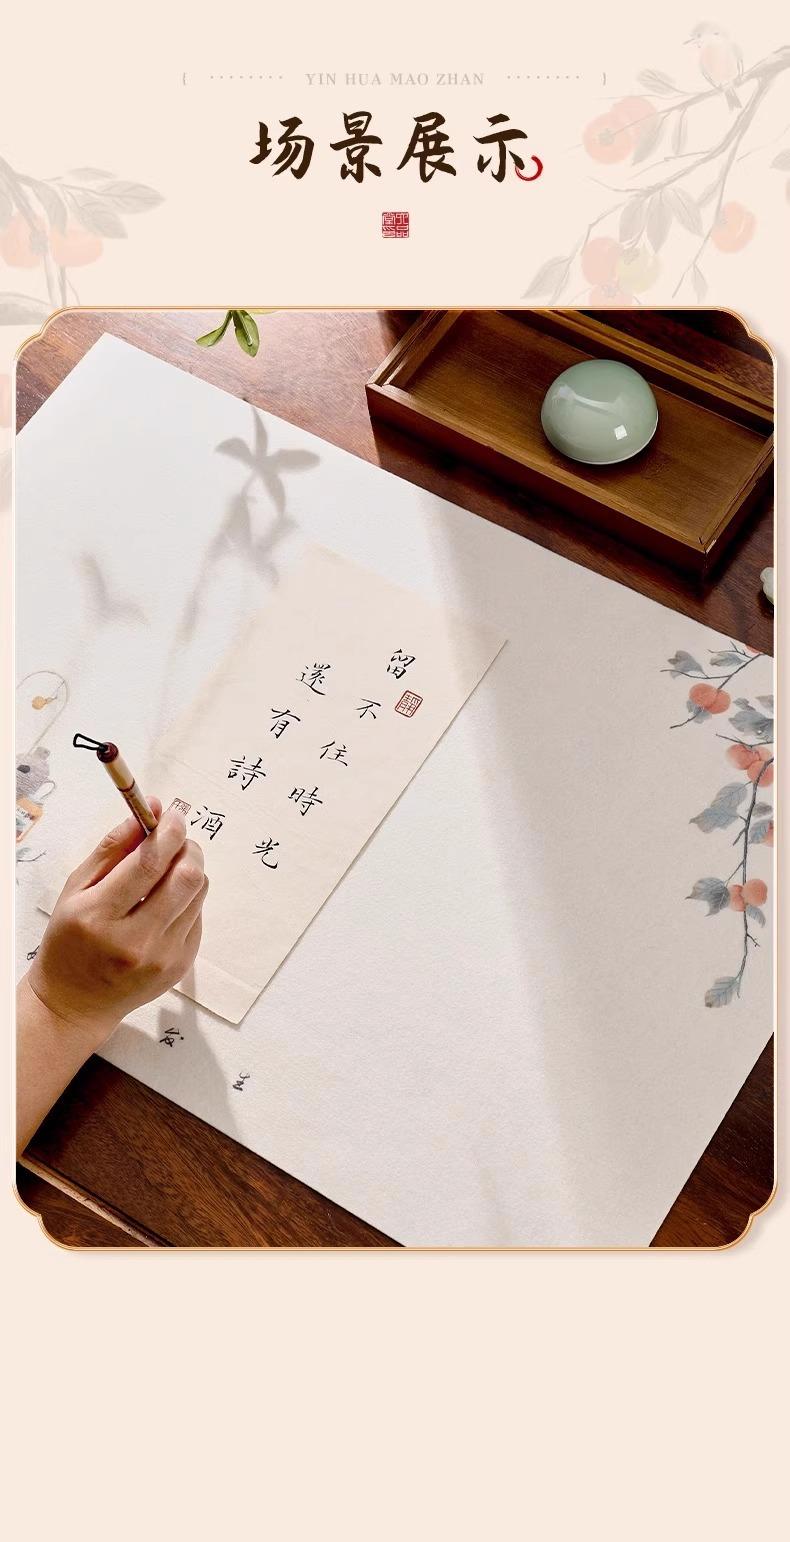 YIN HUA MAO ZHAN
场景展示
六品堂印
留不住時光
還有詩酒
发
生